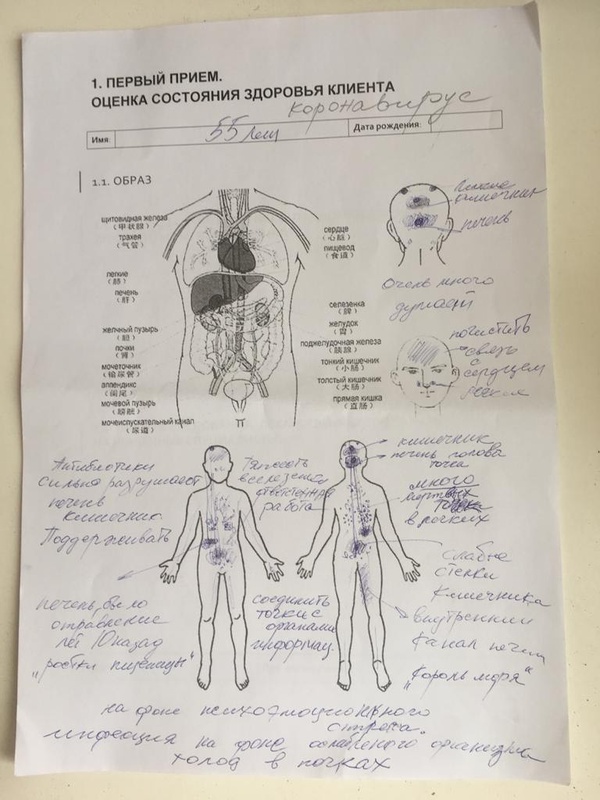 1. ПЕРВЫЙ ПРИЕМ.
ОЦЕНКА СОСТОЯНИЯ ЗДОРОВЬЯ КЛИЕНТА
коронавирус
Имя:
55 лет
Дата рождения:
1.1. ОБРАЗ
щитовидная железа
(甲状腺)
трахея
(气管)
легкие
(肺)
печень
(肝)
желчный пузырь
(胆)
почки
(肾)
мочеточник
(输尿管)
аппендикс
(阑尾)
мочевой пузырь
(膀胱)
мочеиспускательный канал
(尿道)
сердце
(心脏)
пищевод
(食道)
селезенка
(脾)
желудок
(胃)
поджелудочная железа
(胰腺)
тонкий кишечник
(小肠)
толстый кишечник
(大肠)
прямая кишка
(直肠)
печень
Очень много
думает
почистить
связь
с
сердцем
Антибиотики
сильно разрушает
печень
кишечник.
Поддерживать
печень, было
отравление
лет 10 назад
„ростки пшеницы"
Тяжесть
в селезенке
ответственная
работа
соединить
точки с
органами
информац.
кишечник
печень голова
точка
много
мертвых
точек
в почках
слабые
стенки
кишечника
внутренний
канал печени
„Король моря"
на фоне психоэмоционального
стресса.
инфекция на фоне ослабленого организма
холод в почках